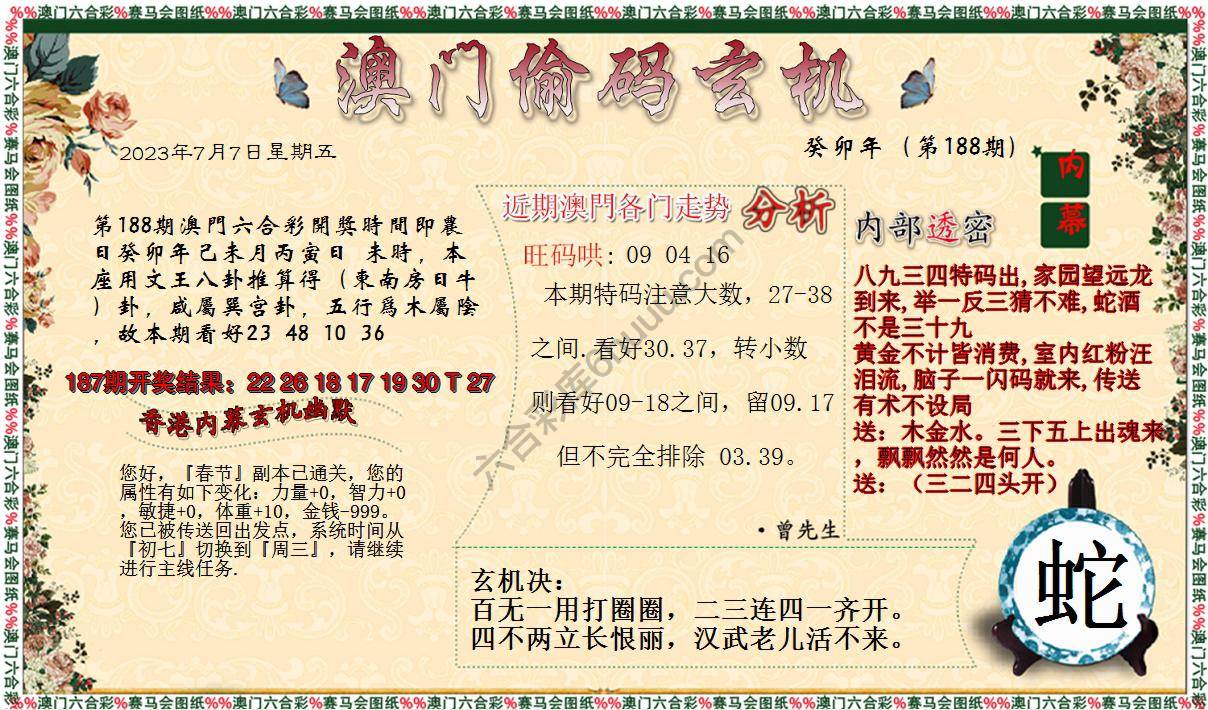 %%澳门六合彩%赛马会图纸%%澳门六合彩%赛马会图纸%%澳门六合彩%赛马会图纸%%澳门六合彩%赛马会图纸%%澳门六合彩%赛马会图纸%%澳门六合彩%赛马会图纸%%
澳门偷码玄机
2023年7月7日星期五
癸卯年（第188期）
内
幕
第188期澳門六合彩開獎時間即農
日癸卯年己未月丙寅日 未時，本
座用文王八卦推算得（東南房日牛
）卦，咸屬巽宫卦，五行爲木屬陰
，故本期看好23 48 10 36
187期开奖结果：22 26 18 17 19 30 T 27
香港内幕玄机幽默
您好，『春节』副本已通关，您的
属性有如下变化：力量+0，智力+0
，敏捷+0，体重+10，金钱-999。
您已被传送回出发点，系统时间从
『初七』切换到『周三』，请继续
进行主线任务.
近期澳門各门走势 分析
旺码哄: 09 04 16
本期特码注意大数，27-38
之间.看好30.37，转小数
则看好09-18之间，留09.17
但不完全排除 03.39。
·曾先生
内部透密
八九三四特码出,家园望远龙
到来,举一反三猜不难,蛇酒
不是三十九
黄金不计皆消费,室内红粉汪
泪流,脑子一闪码就来,传送
有术不设局
送：木金水。三下五上出魂来
，飘飘然然是何人。
送：（三二四头开）
玄机决：
百无一用打圈圈，二三连四一齐开。
四不两立长恨丽，汉武老儿活不来。
蛇
%%澳门六合彩%赛马会图纸%%澳门六合彩%赛马会图纸%%澳门六合彩%赛马会图纸%%澳门六合彩%赛马会图纸%%澳门六合彩%赛马会图纸%%澳门六合彩%赛马会图纸%%